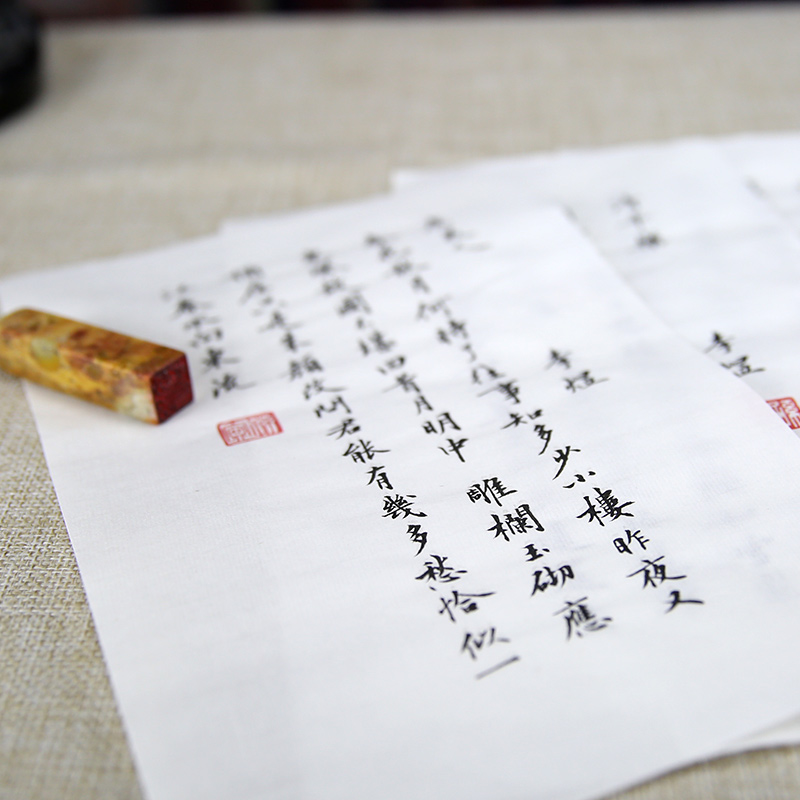 虞美人
李煜
春花秋月何時了往事知多少小樓昨夜又
東風故國不堪回首月明中 雕欄玉砌應
猶在只是朱顏改問君能有幾多愁恰似一
江春水向東流
李煜